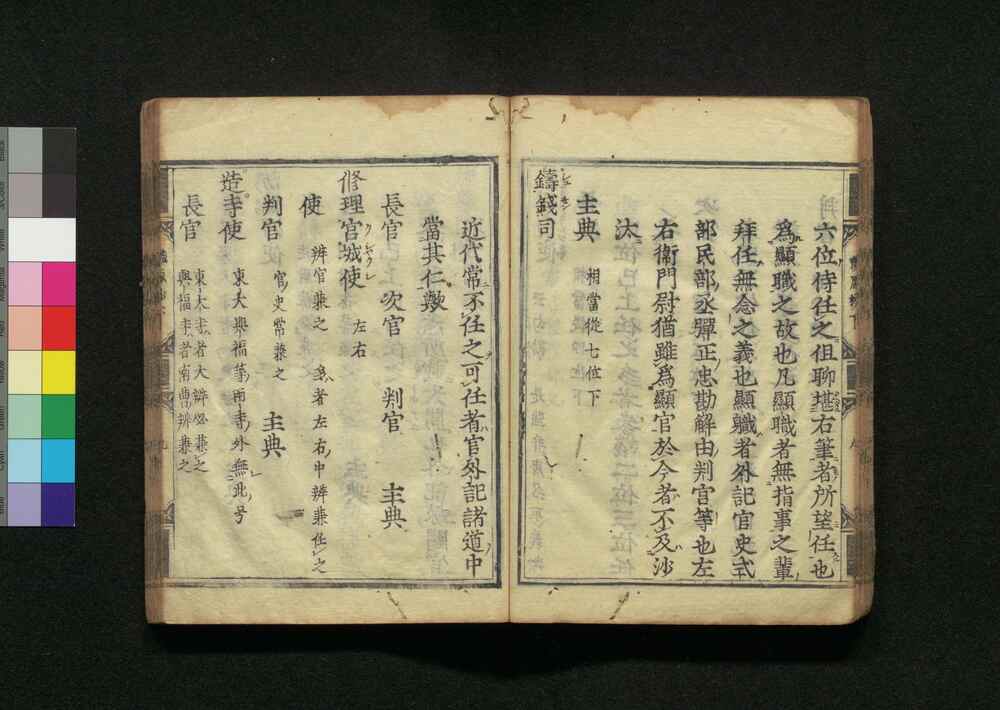 六位侍任之但聊堪右筆者所望任也
為顯職之故也凡顯職者無指事之輩
拜任無念之義也顯職者外記官史式
部民部丞彈正忠勘解由判官等也左
右衛門尉猶雖為顯官於今者不及沙
汰
主典 相當從七位下
鑄錢司
近代常不任之可任者官外記諸道中
當其仁歟
長官 次官 判官 主典
修理官城使 左右
使 辨官兼之 為者左右中辨兼任之
判官 官史常兼之 主典
造寺使 東大興福等兩寺外無此号
長官 東大寺者大辨必兼之
興福寺者南曹辨兼之